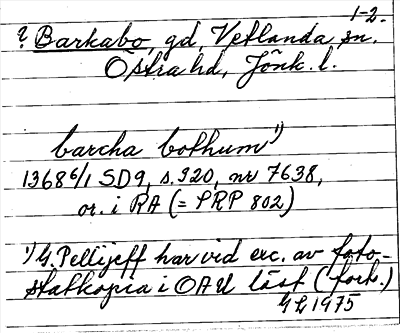 1-2.
? Barkabo, gd, Vetlanda sn.
Östra hd, Jönk. l.
barcha bothum¹⁾
1368 6/1 SD9, s. 320, nr 7638,
or. i RA (= PRP 802)
¹⁾ G. Pellijeff har vid exc. av foto-
statkopia i OAU läst (fork.)
GL 1975